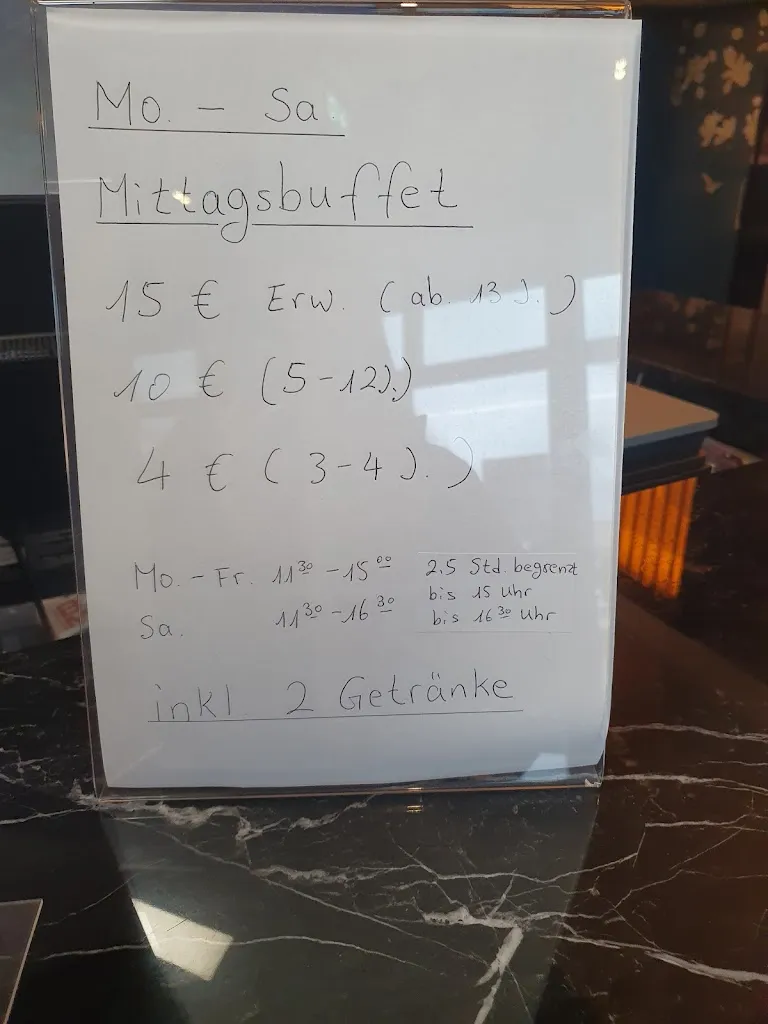 Mo. - Sa.
Mittagsbuffet
15 € Erw. (ab. 13 J.)
10 € (5-12J.)
4 € (3-4 J.)
Mo. - Fr. 11³⁰ - 15⁰⁰ 2,5 Std. begrenzt
bis 15 Uhr
Sa. 11³⁰ - 16³⁰ bis 16³⁰ Uhr
inkl. 2 Getränke